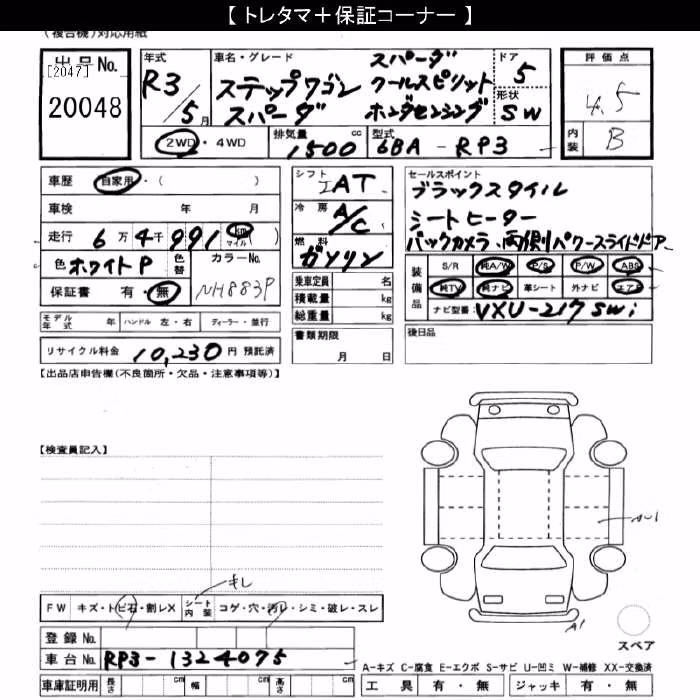 【 トレタマ＋保証コーナー 】
(複合機)対応用紙
出品No.
[2047]
20048
年式
R3/5月
車名・グレード
ステップワゴン スパーダ
スパーダ クールスピリット ホンダセンシング
ドア
5
形状
SW
評価点
4.5
内装
B
2WD・4WD
排気量
1500 cc
型式
6BA-RP3
車歴 自家用・( )
車検 年 月
走行 6万4千991 km マイル ( )
色 ホワイトP 色替
カラーNo.
NH883P
保証書 有・無
モデル年式 年 ハンドル 左・右 ディーラー・並行
リサイクル料金 10,230 円 預託済
シフト
IAT
冷房
A/C
燃料
ガソリン
乗車定員 名
積載量 kg
総重量 kg
書類期限
月 日
セールスポイント
ブラックスタイル
シートヒーター
バックカメラ、両側パワースライドドアー
装備品
S/R 純A/W P/S P/W ABS
純TV 純ナビ 革シート 外ナビ エアB
ナビ型番: VXU-217SWi
後日品
【出品店申告欄(不良箇所・欠品・注意事項等)】
【検査員記入】
キレ
FW キズ・トビ石・割レX シート内装 コゲ・穴・汚レ・シミ・破レ・スレ
登録No.
車台No. RP3-1324075
車庫証明用 長さ cm 幅 cm 高さ cm
A1
スペア
A-キズ C-腐食 E-エクボ S-サビ U-凹ミ W-補修 XX-交換済
工具 有・無 ジャッキ 有・無